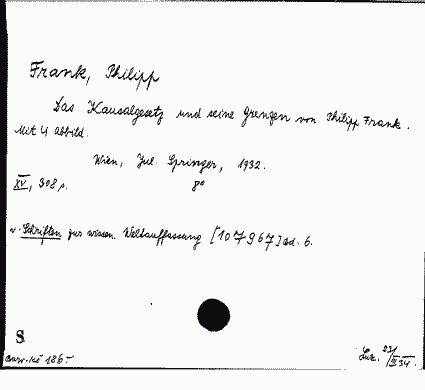 Frank, Philipp
Das Kausalgesetz und seine Grenzen von Philipp Frank.
Mit 4 Abbild.
Wien, Jul. Springer, 1932.
XV, 308 p. 8°
v. Schriften zur wissen. Weltauffassung [107967] Bd. 6.
S.